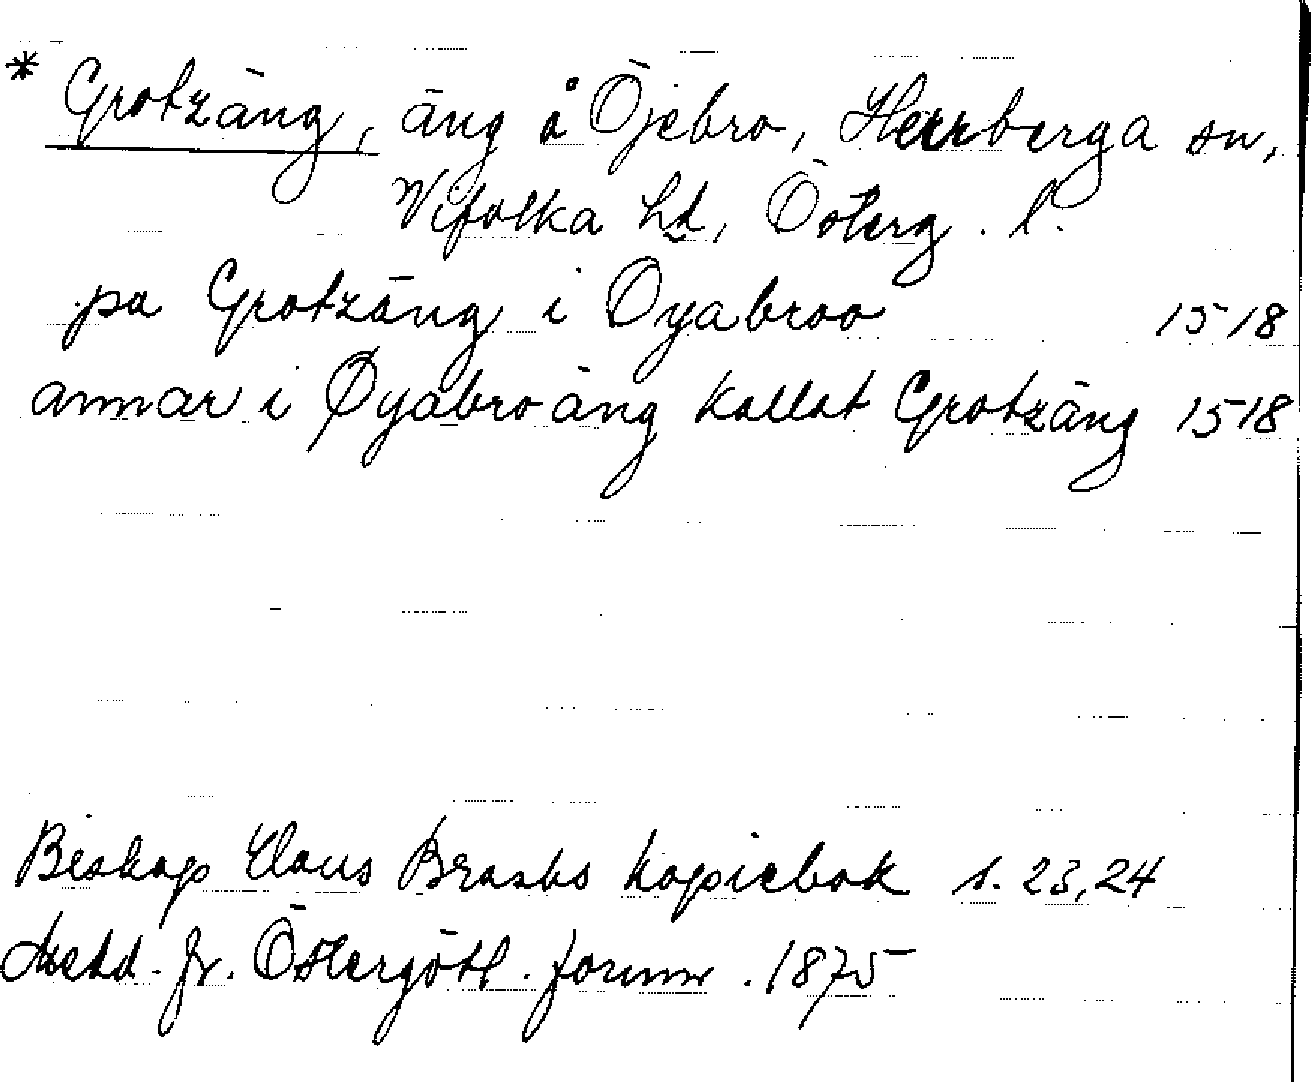 * Grotzäng, äng å Öjebro, Herrberga sn,
Vifolka hd, Österg. l.
pa Grotzäng i Oyabroo 1518
annar i Øyabro äng kallat Grotzäng 1518
Biskop Claus Brasks kopiebok s. 23, 24
Medd. fr. Östergötl. fornm. 1875